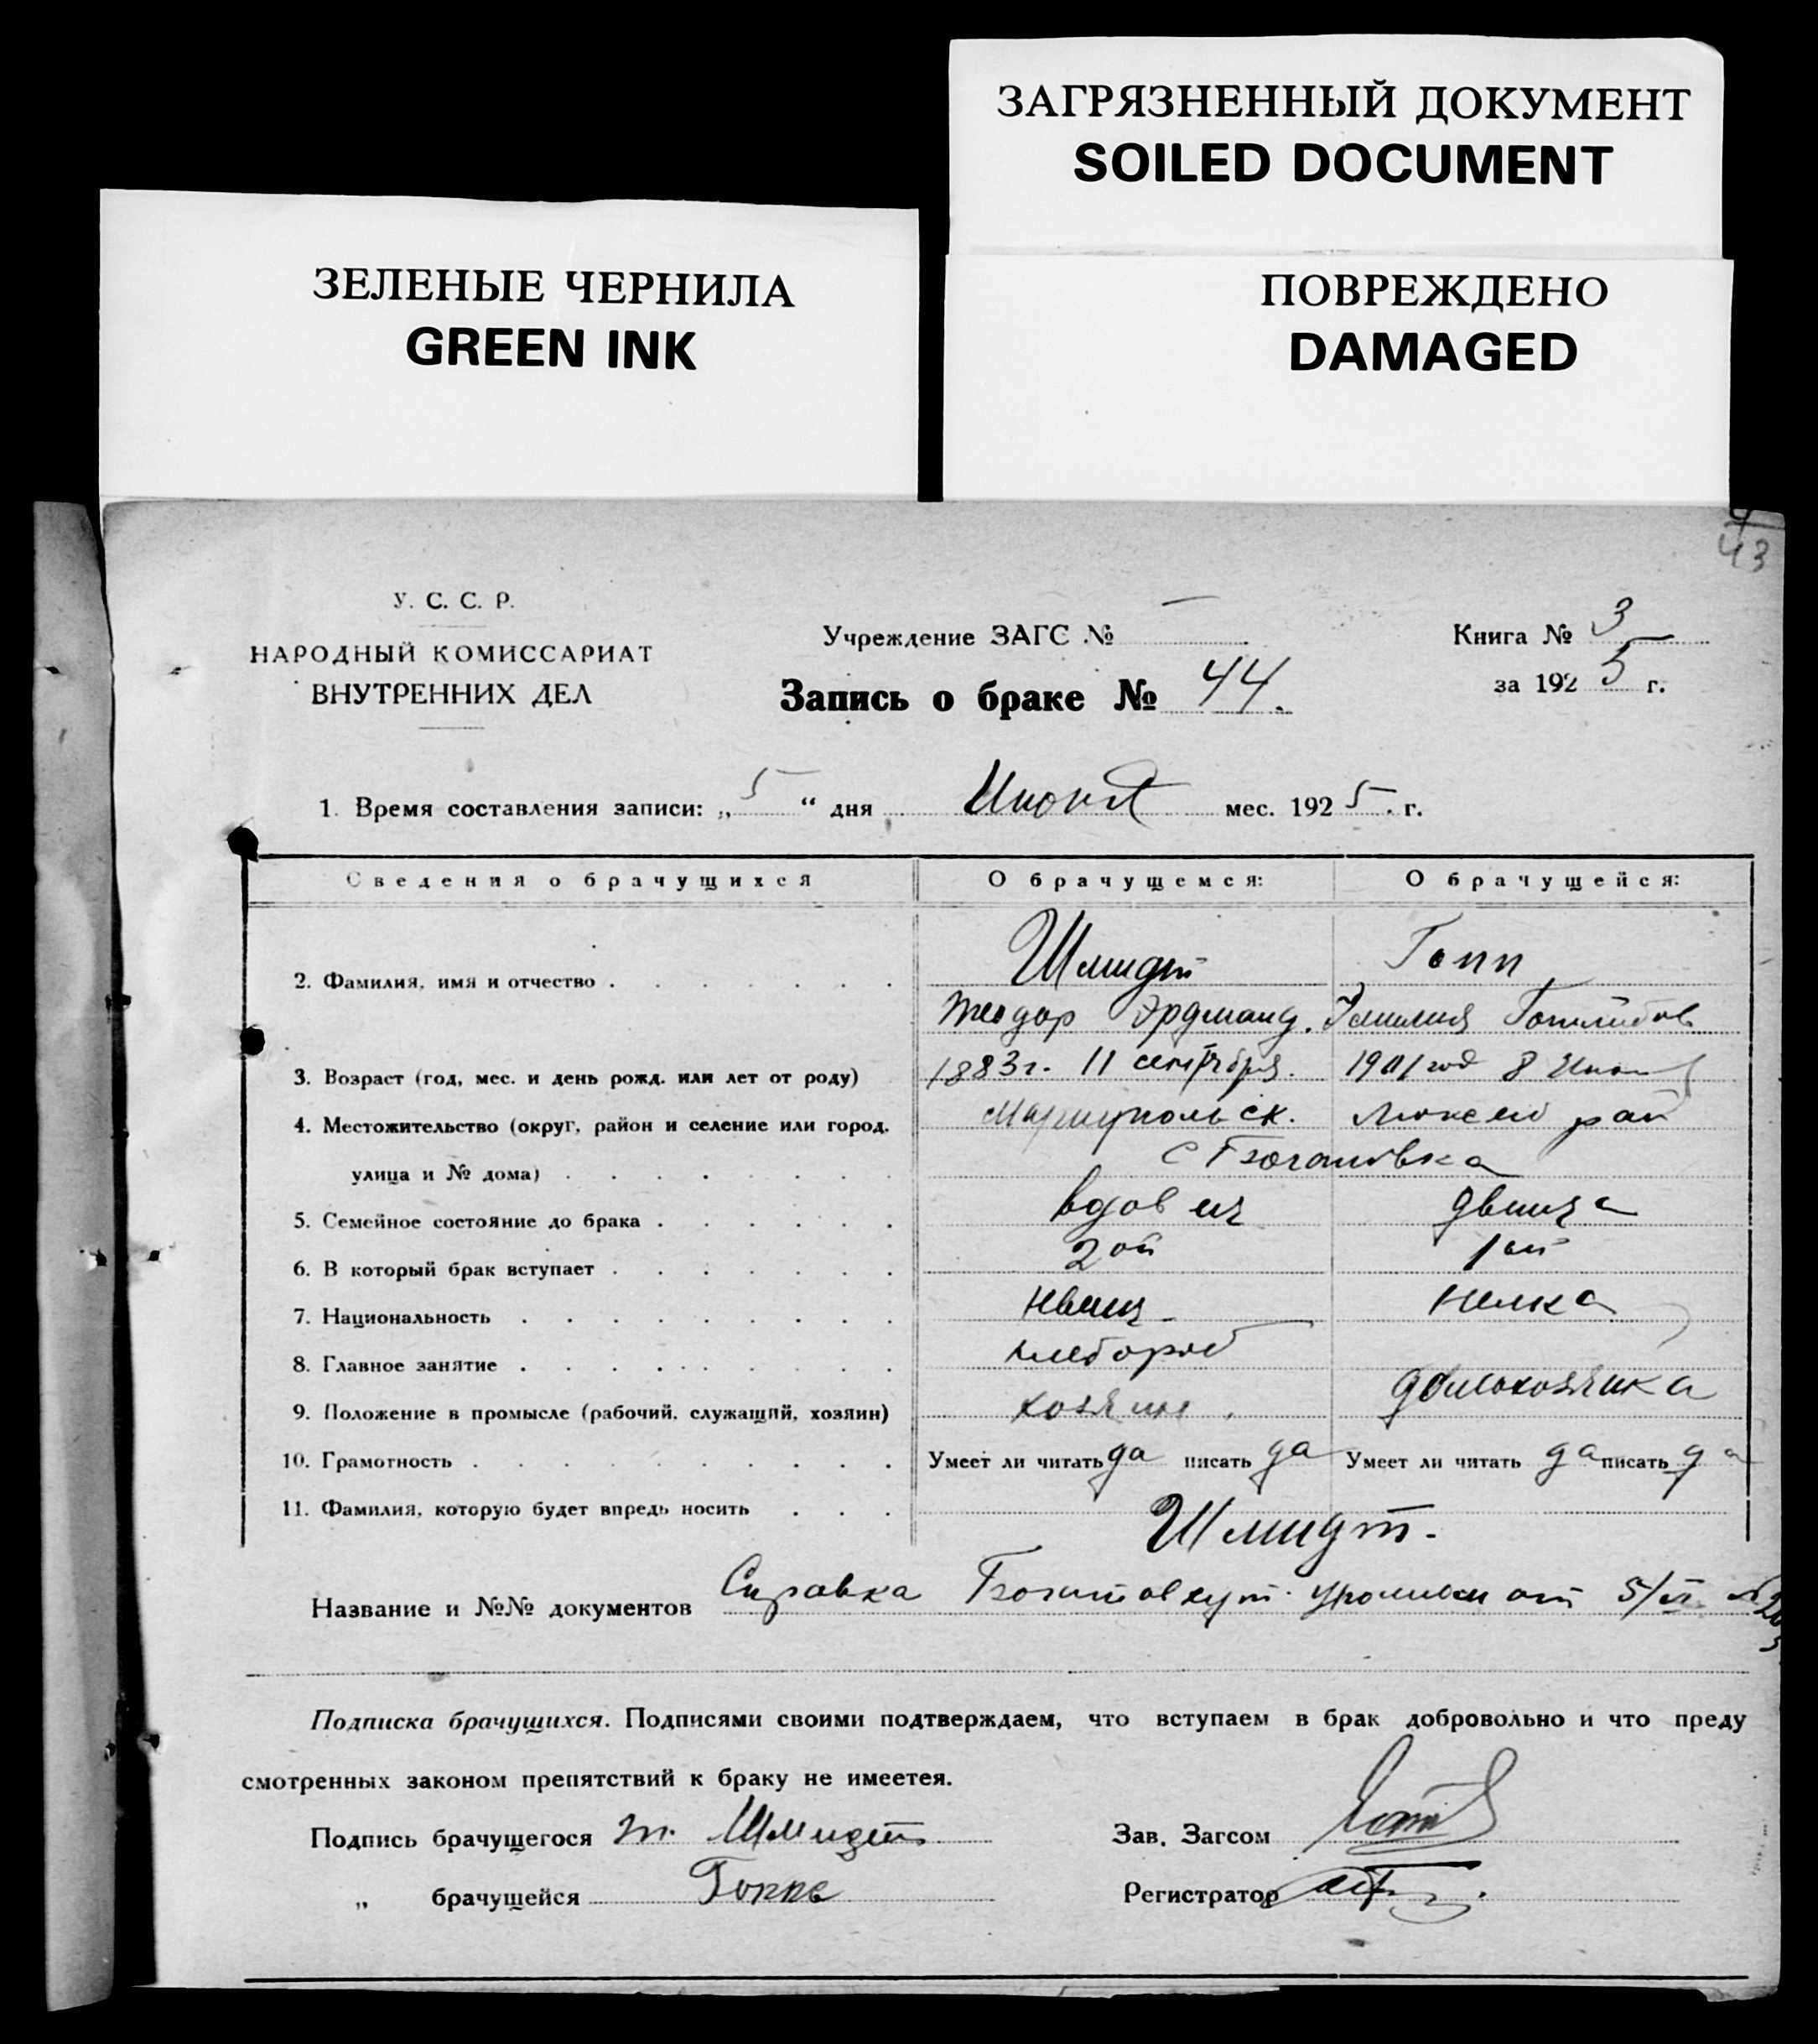 ЗАГРЯЗНЕННЫЙ ДОКУМЕНТ
SOILED DOCUMENT
ЗЕЛЕНЫЕ ЧЕРНИЛА
GREEN INK
ПОВРЕЖДЕНО
DAMAGED
43
У. С. С. Р.
НАРОДНЫЙ КОМИССАРИАТ
ВНУТРЕННИХ ДЕЛ
Учреждение ЗАГС № —
Запись о браке № 44.
Книга № 3
за 1925 г.
1. Время составления записи: „5“ дня Июня мес. 1925. г.
Сведения о брачущихся О брачущемся: О брачущейся:
2. Фамилия, имя и отчество Шмидт Гопп
Теодор Эрдманд. Эмилия
3. Возраст (год, мес. и день рожд. или лет от роду) 1883г. 11 сентября. 1901 год 8
4. Местожительство (округ, район и селение или город, Мариупольск. рай
улица и № дома) с
5. Семейное состояние до брака вдовец двица
6. В который брак вступает 2ой 1ый
7. Национальность немец немка
8. Главное занятие хлебороб
9. Положение в промысле (рабочий, служащий, хозяин) хозяин. домохозяйка
10. Грамотность Умеет ли читать да писать да Умеет ли читать да писать да
11. Фамилия, которую будет впредь носить Шмидт.
Название и №№ документов Справка от 5/VI №
Подписка брачущихся. Подписями своими подтверждаем, что вступаем в брак добровольно и что преду
смотренных законом препятствий к браку не имеетея.
Подпись брачущегося Т. Шмидт Зав. Загсом
„ брачущейся Гоппе Регистратор